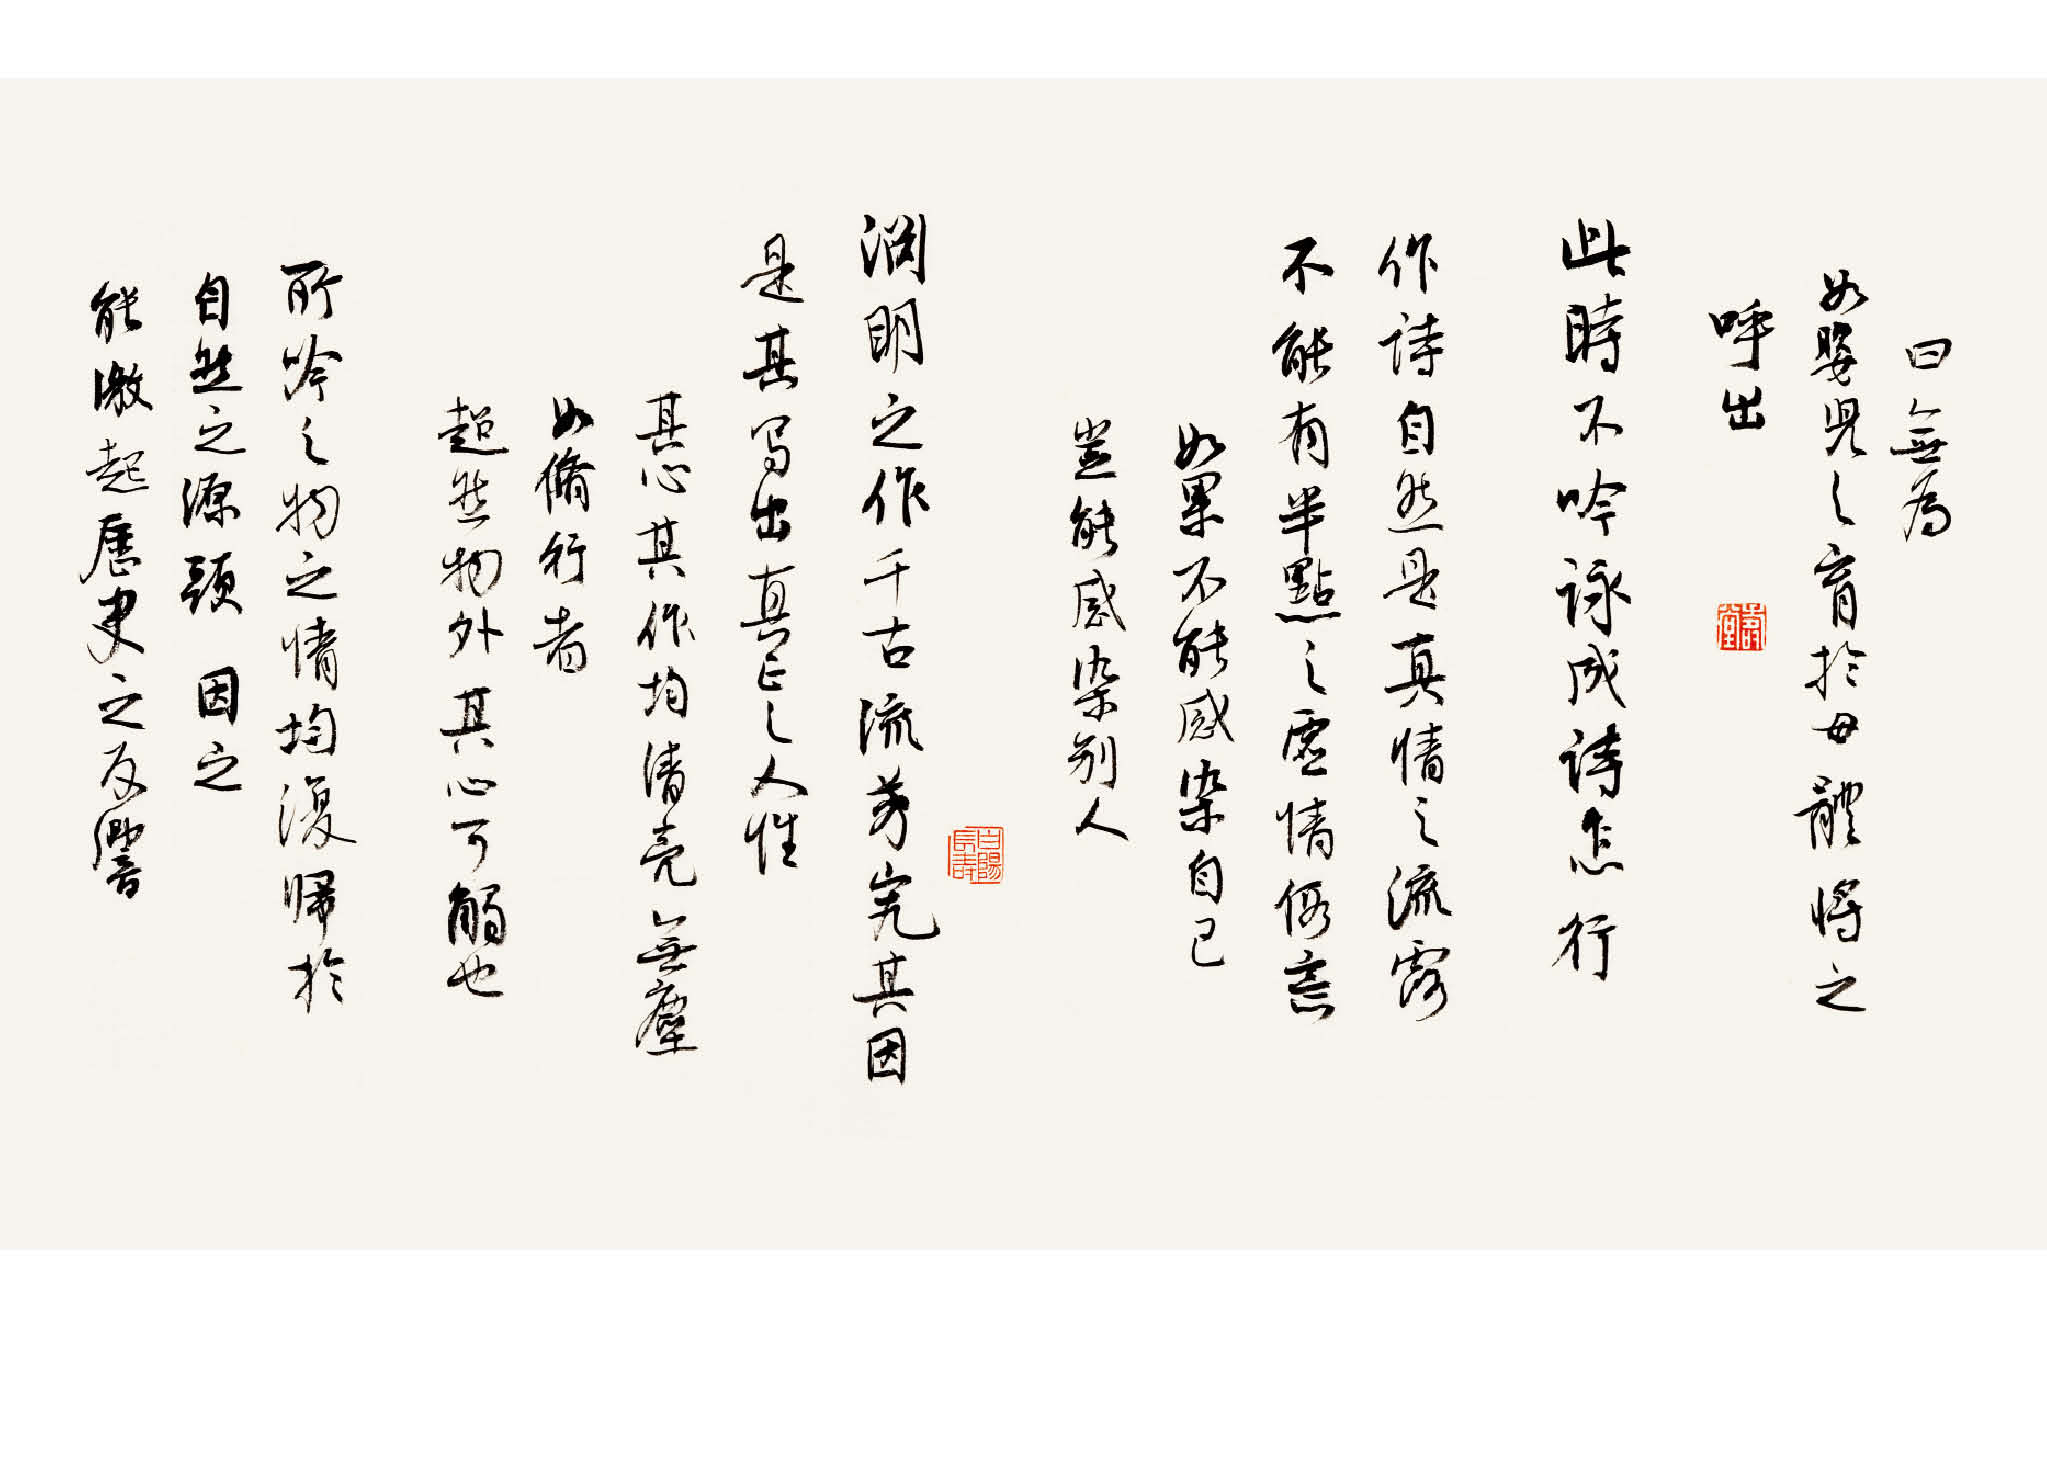 曰無為
如嬰兒之育於母體將之
呼出
此時不吟詠成詩怎行
作詩自然是真情之流露
不能有半點之虛情假意
如果不能感染自己
豈能感染别人
百陽長壽
渊明之作千古流芳究其因
是其写出真正之人性
其心其作均清亮無塵
如脩行者
超然物外其心可觸也
所吟之物之情均復歸於
自然之源頭 因之
能激起歷史之反響